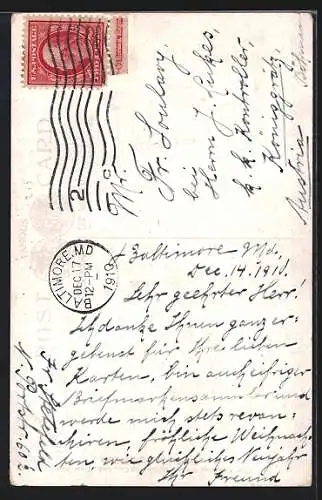 U.S. POSTAGE
2
Mr.
Fr. Soulavy
bei
Herrn J. Lukes,
k. k. Kontrollor,
Königgrätz,
Böhmen
Austria
BALTIMORE, MD
DEC 17
12-PM
1910
Baltimore Md.
Dec. 14. 1910.
Sehr geehrter Herr!
Ich danke Ihnen ganz er-
gebenst für Ihre lieben
Karten, bin auch eifriger
Briefmarkensammler und
werde mich stets revan-
chiren, fröhliche Weihnach-
ten, wie glückliches Neujahr
Ihr Freund